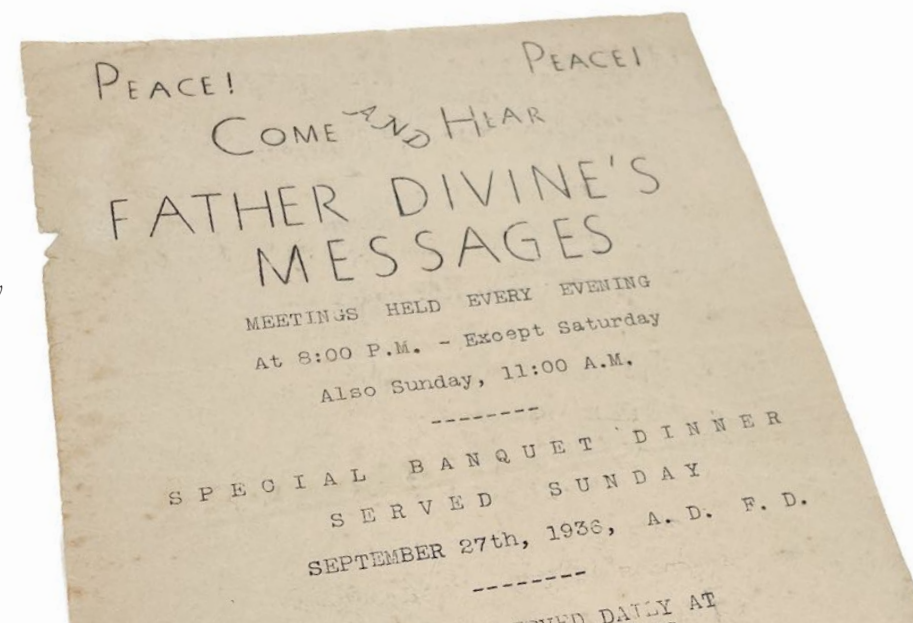 PEACE! PEACE!
COME AND HEAR
FATHER DIVINE'S
MESSAGES
MEETINGS HELD EVERY EVENING
At 8:00 P.M. - Except Saturday
Also Sunday, 11:00 A.M.
--------
SPECIAL BANQUET DINNER
SERVED SUNDAY
SEPTEMBER 27th, 1936, A. D. F. D.
--------
DAILY AT